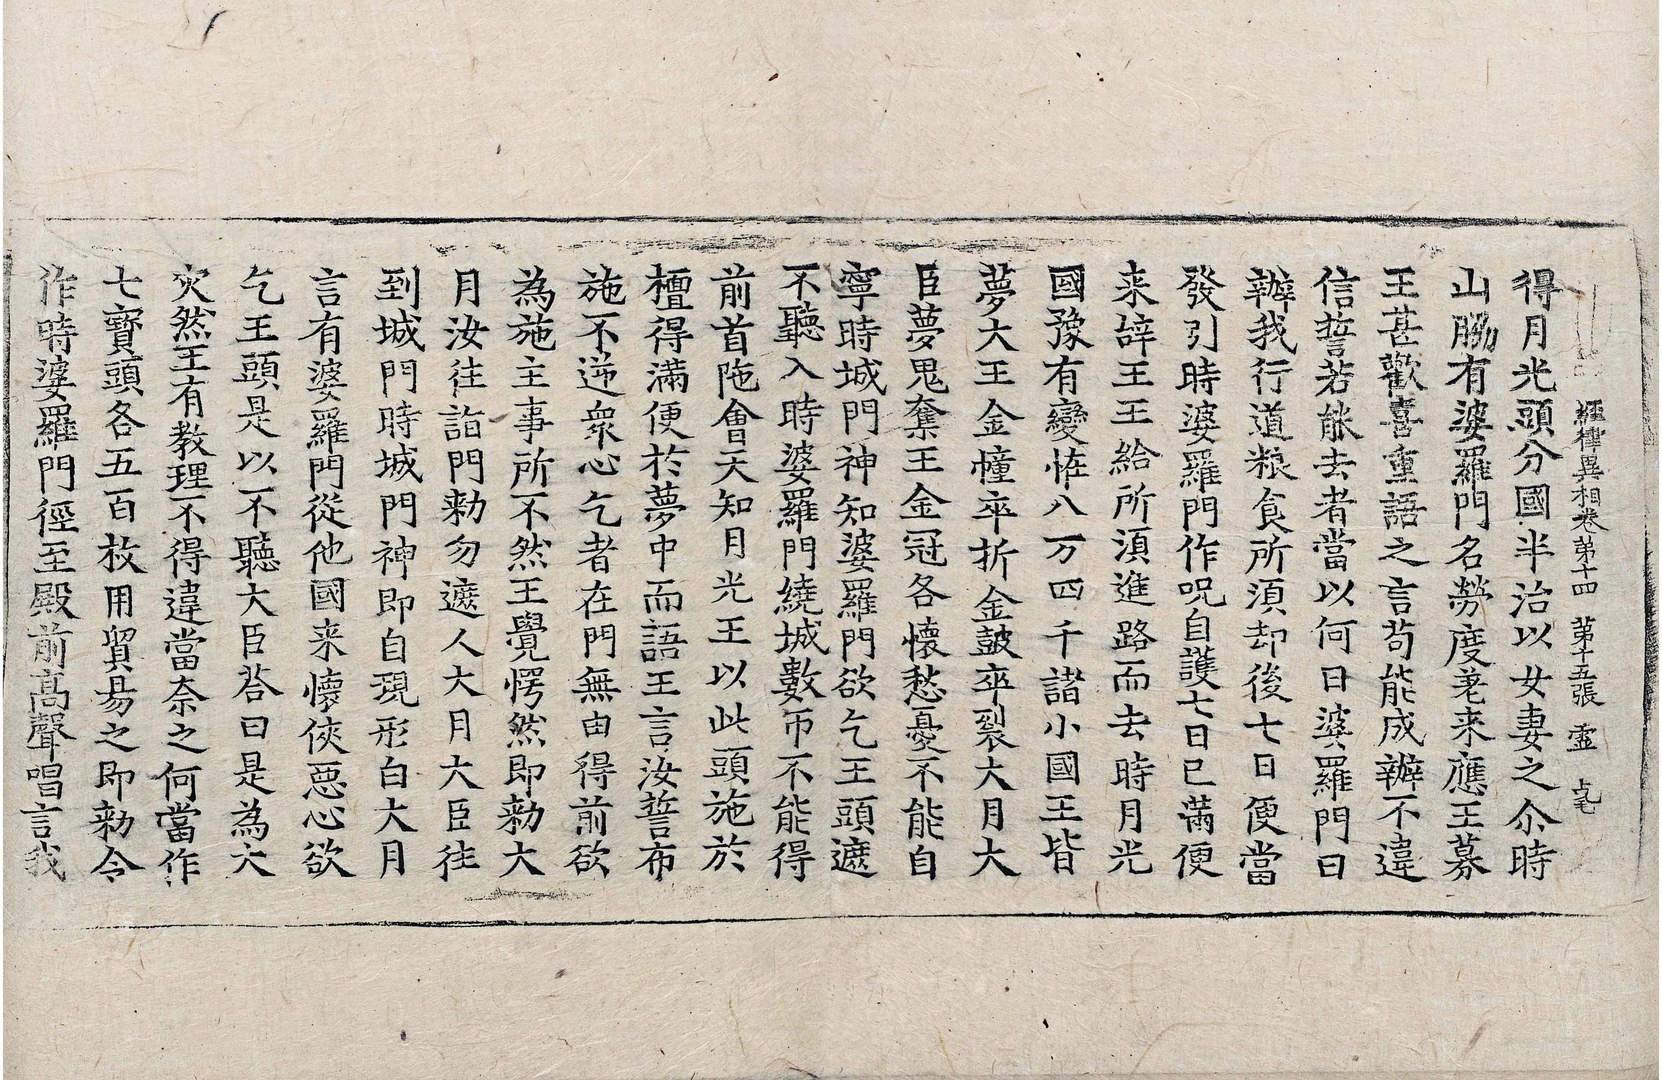 經律異相卷第十四 第十五張 靈
得月光頭分國半治以女妻之尒時
山脇有婆羅門名勞度差来應王募
王甚歡喜重語之言苟能成辦不違
信誓若能去者當以何日婆羅門曰
辦我行道粮食所湏却後七日便當
發引時婆羅門作呪自護七日已滿便
来辝王王給所湏進路而去時月光
國豫有變恠八万四千諸小國王皆
夢大王金幢卒折金鼓卒裂大月大
臣夢鬼奪王金冠各懷愁憂不能自
寧時城門神知婆羅門欲乞王頭遮
不聽入時婆羅門繞城數帀不能得
前首陁會天知月光王以此頭施於
檀得滿便於夢中而語王言汝誓布
施不逆衆心乞者在門無由得前欲
為施主事所不然王覺愕然即勑大
月汝往詣門勑勿遮人大月大臣往
到城門時城門神即自現形白大月
言有婆羅門從他國来懷俠惡心欲
乞王頭是以不聽大臣荅曰是為大
灾然王有教理不得違當奈之何當作
七寶頭各五百枚用貿易之即勑令
作時婆羅門徑至殿前高聲唱言我